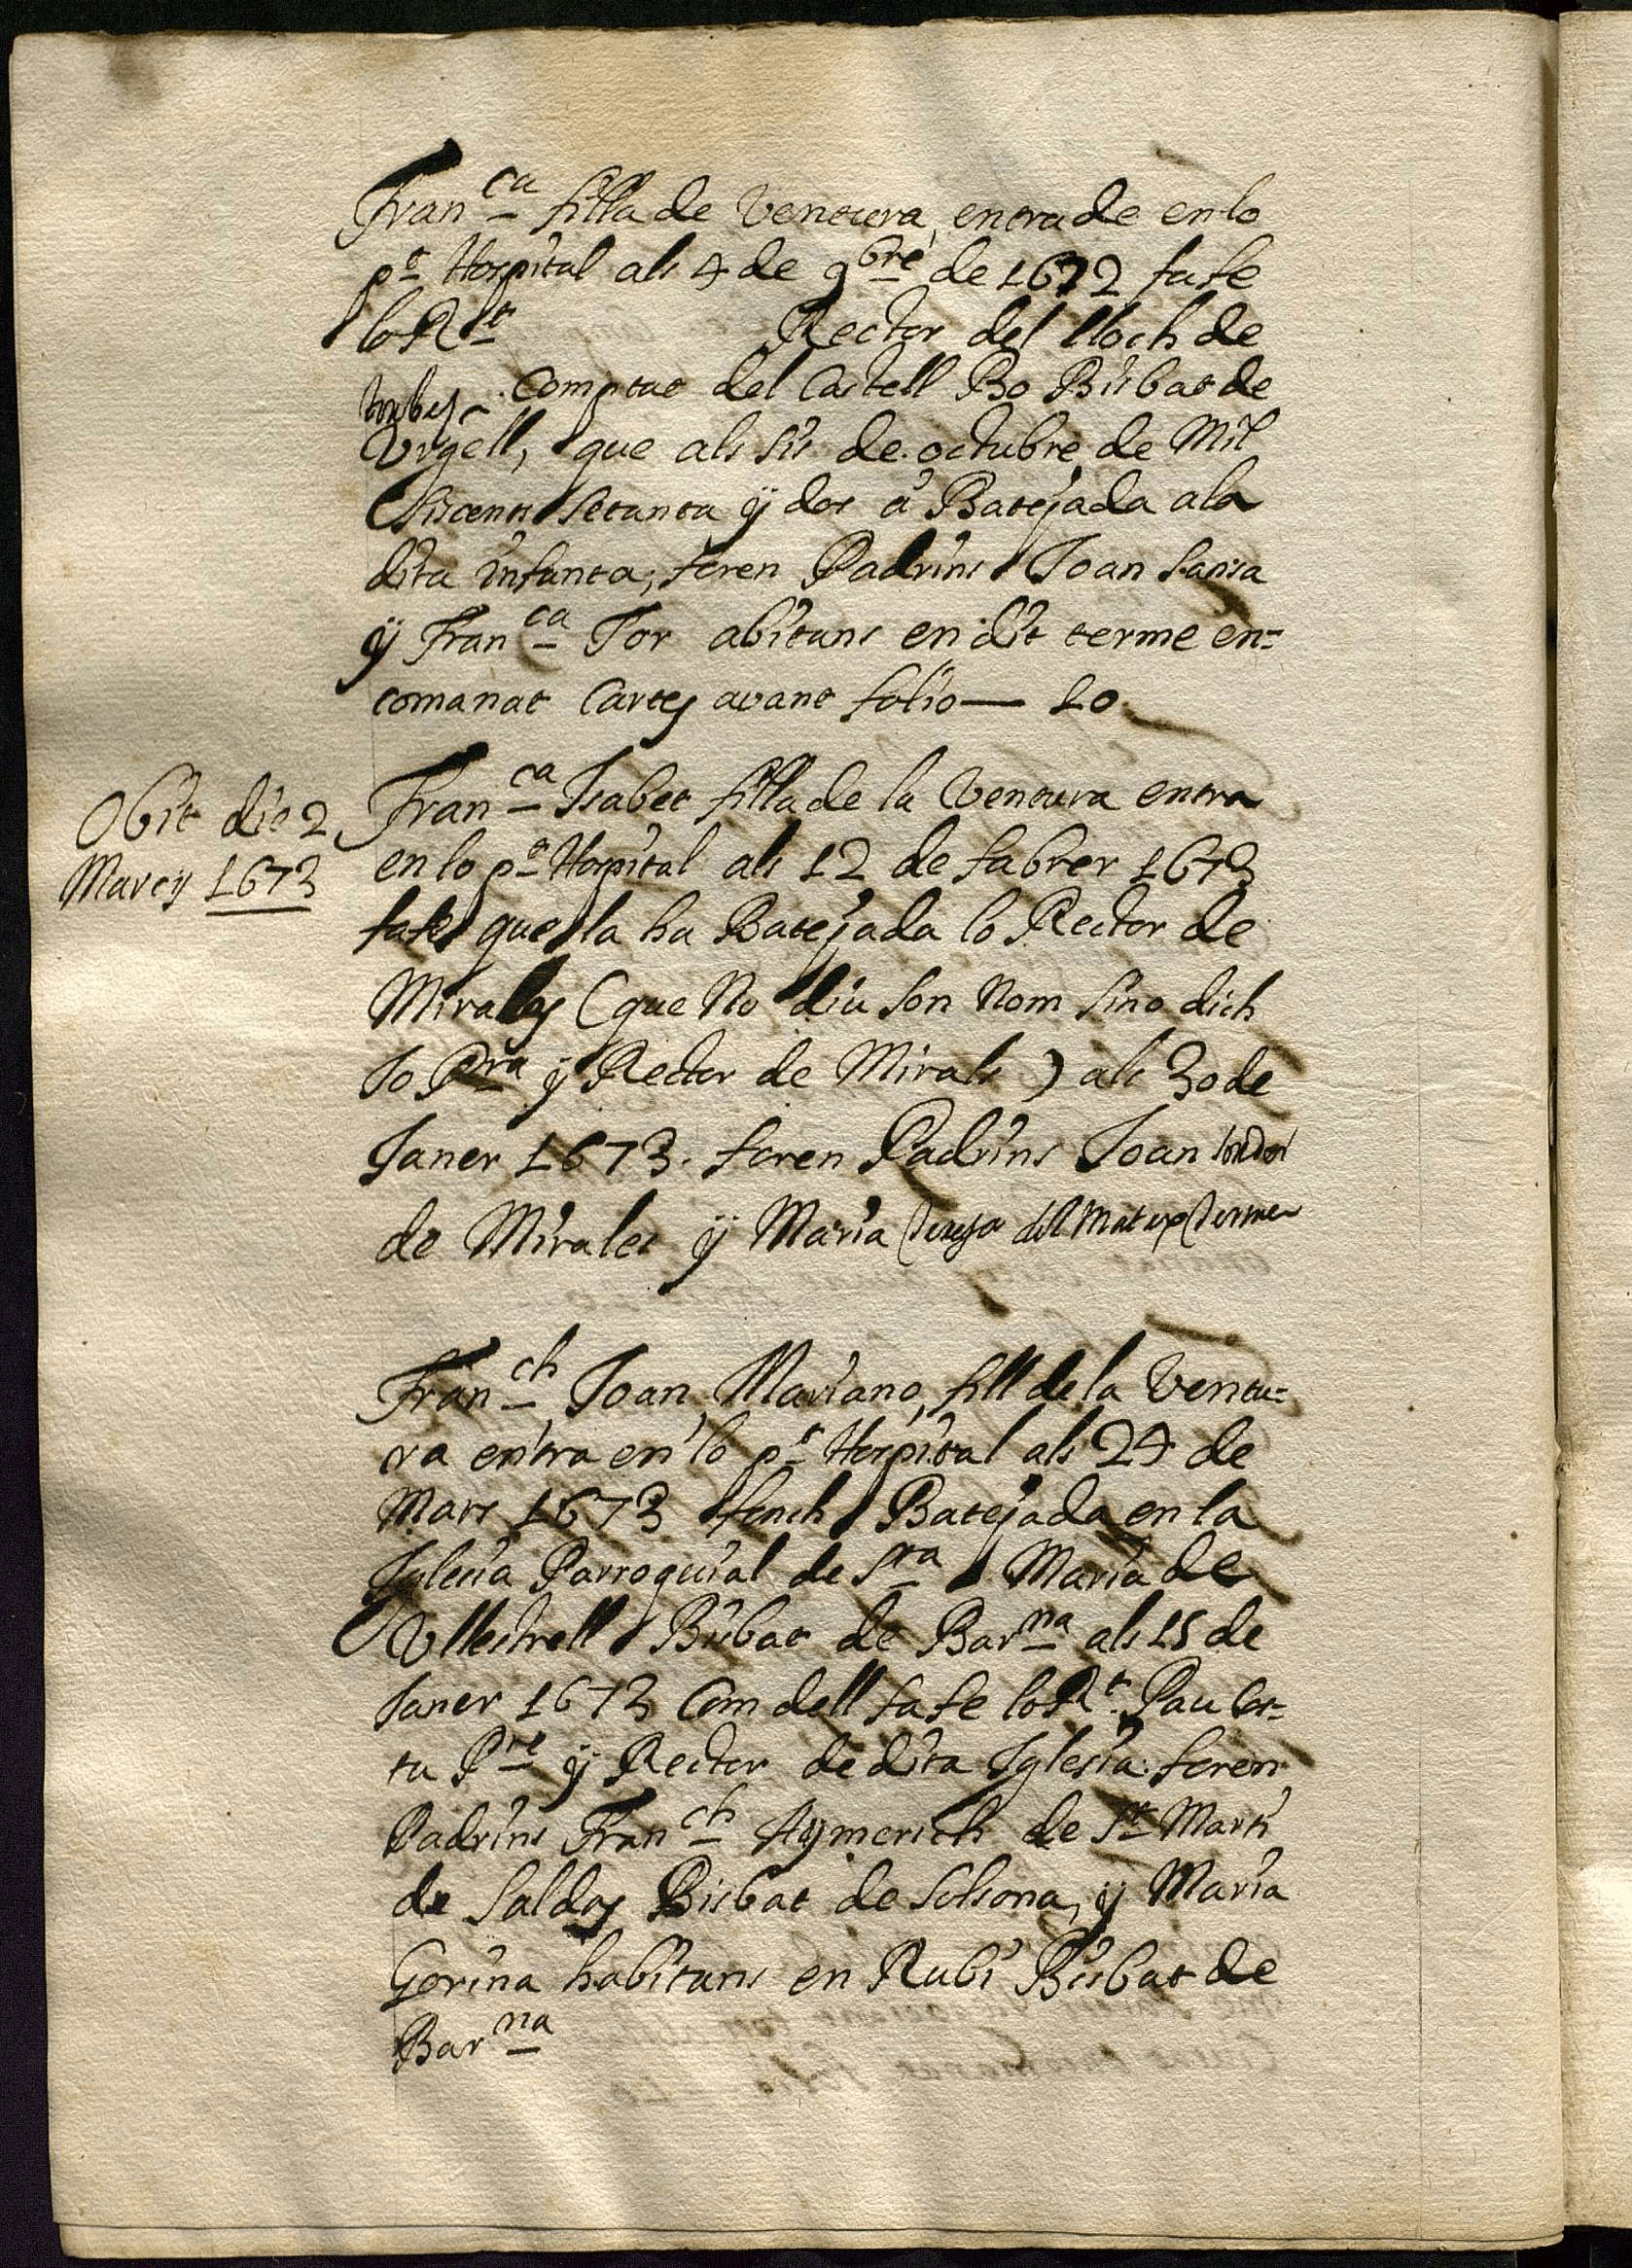 Fran^ca filla de Ventura, entrade en lo
p^t Hospital als 4 de 9^bre de 1672 fa fe
lo R^t Rector del lloch de
Comptat del Castell Bo Bisbat de
Urgell, que als sis de octubre de Mil
Siscents Setanta ÿ dos á Batejada ala
dita infanta; foren Padrins Joan Sansa
ÿ Fran^ca Tor abitans en dit terme en=
comanat Cartes avant folio — 10
Obit die 2
Marcy 1673
Fran^ca Isabet filla de la Ventura entra
en lo p^t Hospital als 12 de fabrer 1673
fa fe que la ha Batejada lo Rector de
Mirales (que No diu son Nom sino dich
Jo P^re ÿ Rector de Mirals) als 30 de
Janer 1673. foren Padrins Joan
de Mirales ÿ Maria Teresa del Mateix Terme
Fran^ch Joan Mariano, fill de la Ventu=
ra entra en lo p^t Hospital als 24 de
Mars 1673 fonch Batejada en la
Iglesia Parroquial de S^ta Maria de
Ullestrell Bisbat de Bar^na als 15 de
Janer 1673 Com dell fa fe lo R^t Pau Cor=
tu P^re ÿ Rector de dita Iglesia: foren
Padrins Fran^ch Aymerich de S^t Marti
de Saldes Bisbat de Solsona, ÿ Maria
Gorina habitans en Rubi Bisbat de
Bar^na